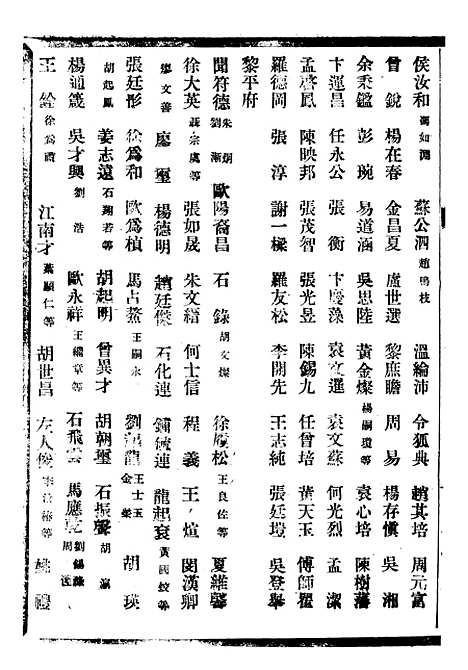 侯汝和 蘇公泗 趙鳴枝 溫綸沛 令狐典 趙其培 周元富
曾銳 楊在春 金昌夏 盧世選 黎庶瞻 周易 楊存慎 吳湘
余秉鑑 彭琬 易道涵 吳思陸 黃金燦 楊嗣瓊等 袁心培 陳樹藩
卞運昌 任永公 張衡 卞慶藻 袁文選 袁文蘇 何光烈 孟潔
孟啓鳳 陳映邦 張茂智 張光昱 陳錫九 任曾培 葉天玉 傅師瞿
羅德岡 張淳 謝一樑 羅友松 李開先 王志純 張廷瑄 吳登舉
黎平府
聞符德 朱炯 劉漸 歐陽裔昌 石錄 胡文燦 徐履松 王良佐等 夏維馨
徐大英 聶宗虞等 張如晟 朱文縉 何士信 程義 王煊 閔漢卿
廖文善 廖璽 楊德明 趙廷傑 石化連 鏞 連 龍起袞 黃 蛟等
張廷彤 徐爲和 歐爲楨 馬占鰲 王嗣永 劉 龍 王士五 金榮 胡瑛
胡起鳳 姜志遠 石翔若等 胡起明 曾異才 胡朝璽 石振聲 胡瀛
楊通箴 吳才興 劉浩 歐永祥 王繼章等 石飛雲 馬應乾 劉錫 周
王 徐爲 江南才 葉顯仁等 胡世昌 左人俊 李 椿等 姚禮